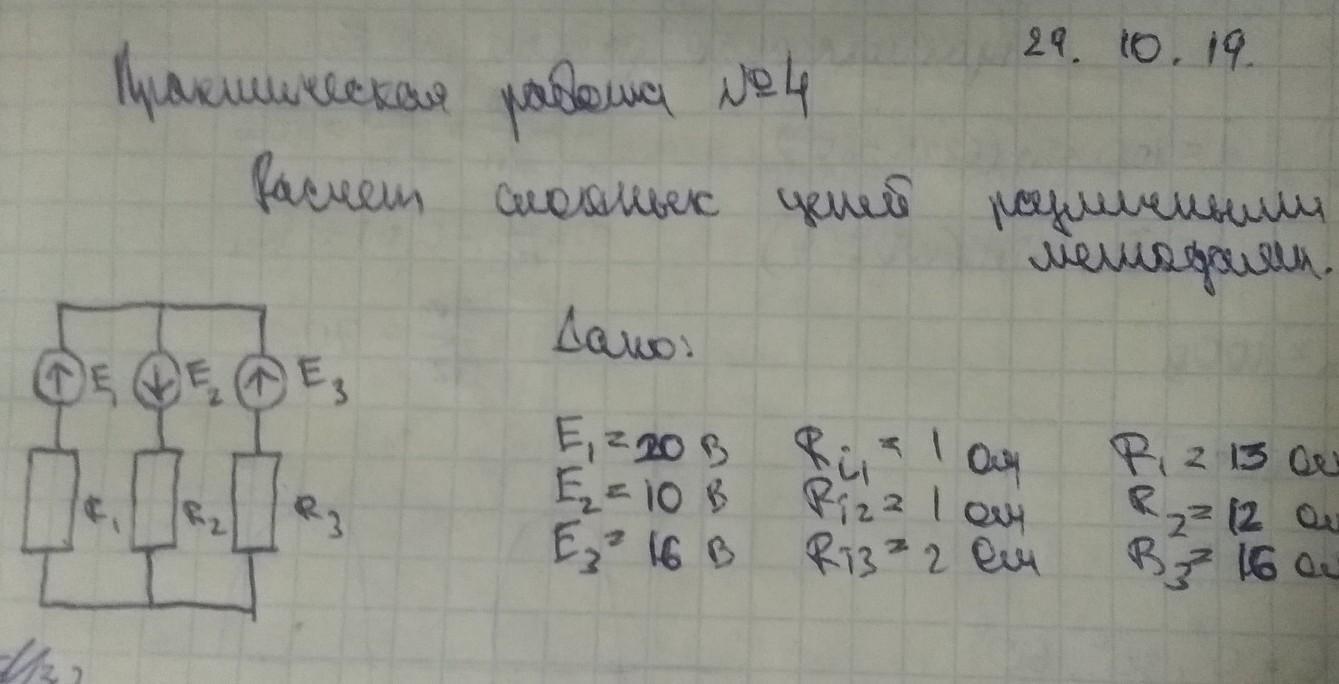 29. 10. 19.
Практическая работа №4
Расчет сложных цепей различными
методами.
Дано:
E₁ E₂ E₃
R₁ R₂ R₃
E₁ = 20 В Ri₁ = 1 Ом R₁ = 13 Ом
E₂ = 10 В Ri2 = 1 Ом R₂ = 12 Ом
E₃ = 16 В Ri3 = 2 Ом R₃ = 16 Ом